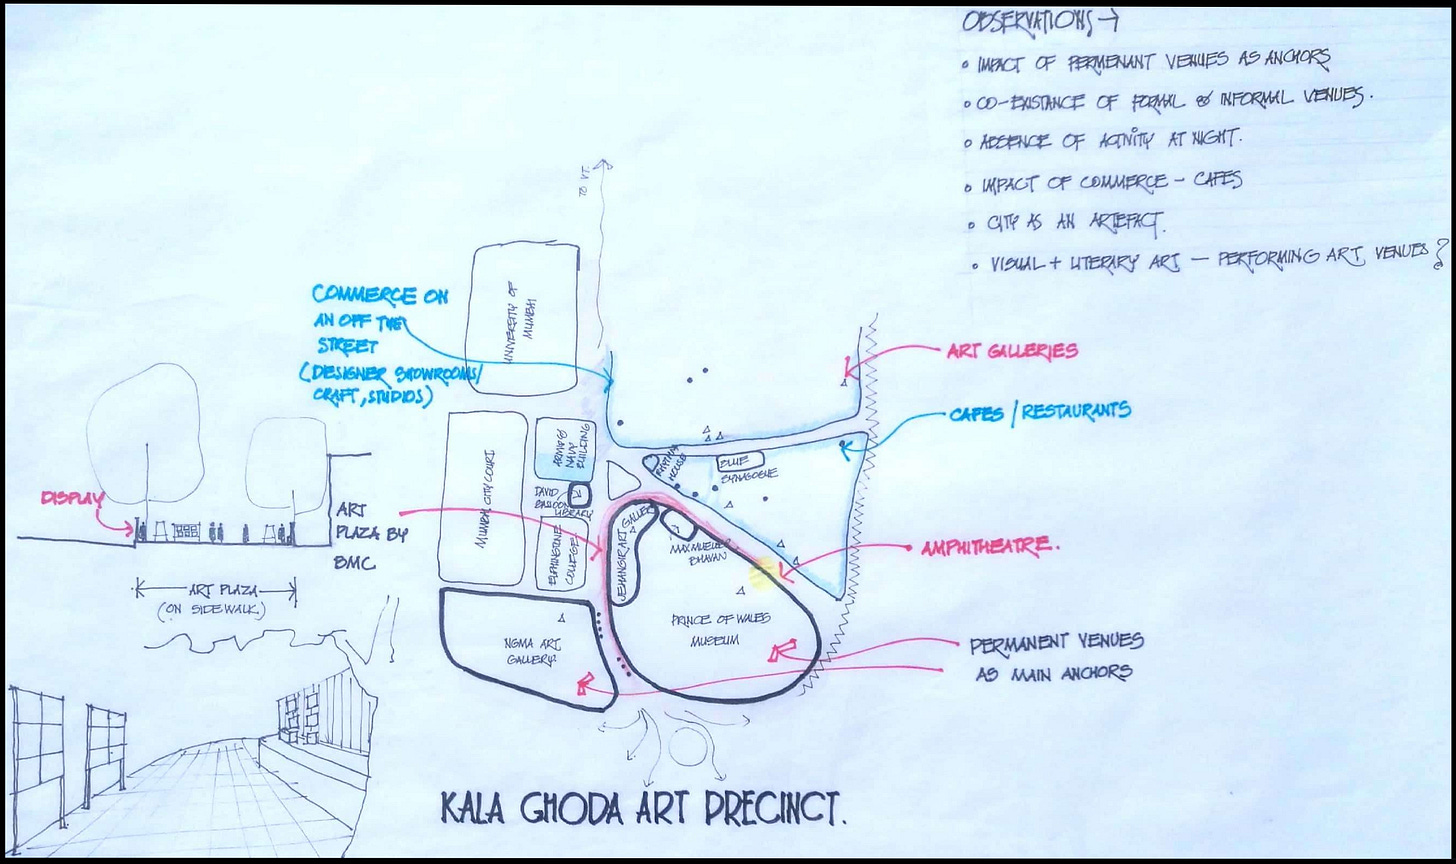 OBSERVATIONS →
• IMPACT OF PERMENANT VENUES AS ANCHORS
• CO-EXISTANCE OF FORMAL & INFORMAL VENUES.
• ABSENCE OF ACTIVITY AT NIGHT.
• IMPACT OF COMMERCE - CAFES
• CITY AS AN ARTEFACT.
• VISUAL + LITERARY ART — PERFORMING ART VENUES?
TO VT.
UNIVERSITY OF
MUMBAI
COMMERCE ON
AN OFF THE
STREET
(DESIGNER SHOWROOMS/
CRAFT, STUDIOS)
ART GALLERIES
CAFES / RESTAURANTS
MUMBAI CITY COURT
NAVY
BUILDING
DAVID
LIBRARY
ELPHINSTONE
COLLEGE
RHYTHM
HOUSE
BLUE
SYNAGOGUE
DISPLAY
ART
PLAZA BY
BMC
JEHANGIR ART GALLERY
MAX MUELLER
BHAVAN
AMPHITHEATRE.
ART PLAZA
(ON SIDEWALK.)
NGMA ART
GALLERY
PRINCE OF WALES
MUSEUM
PERMANENT VENUES
AS MAIN ANCHORS
KALA GHODA ART PRECINCT.